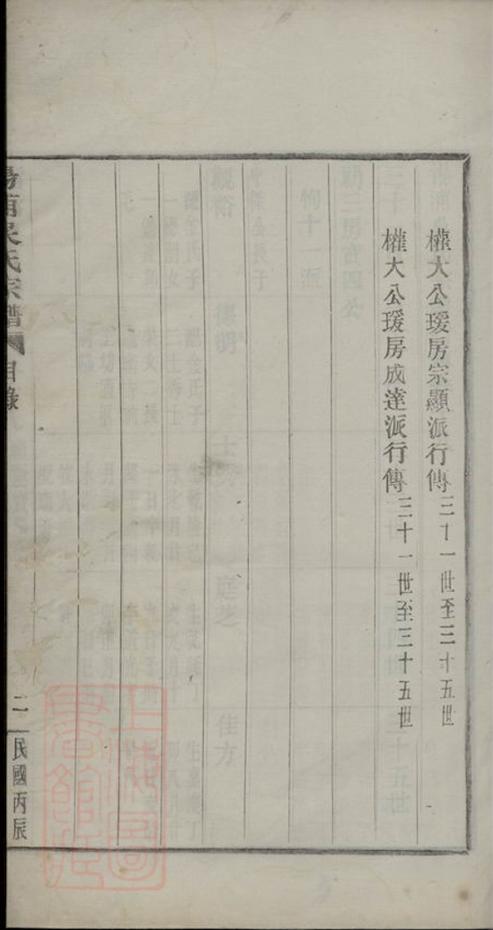 權大公瑗房宗顯派行傳三十一世至三十五世
權大公瑗房成達派行傳三十一世至三十五世
吳氏宗譜 目錄 二 民國丙辰